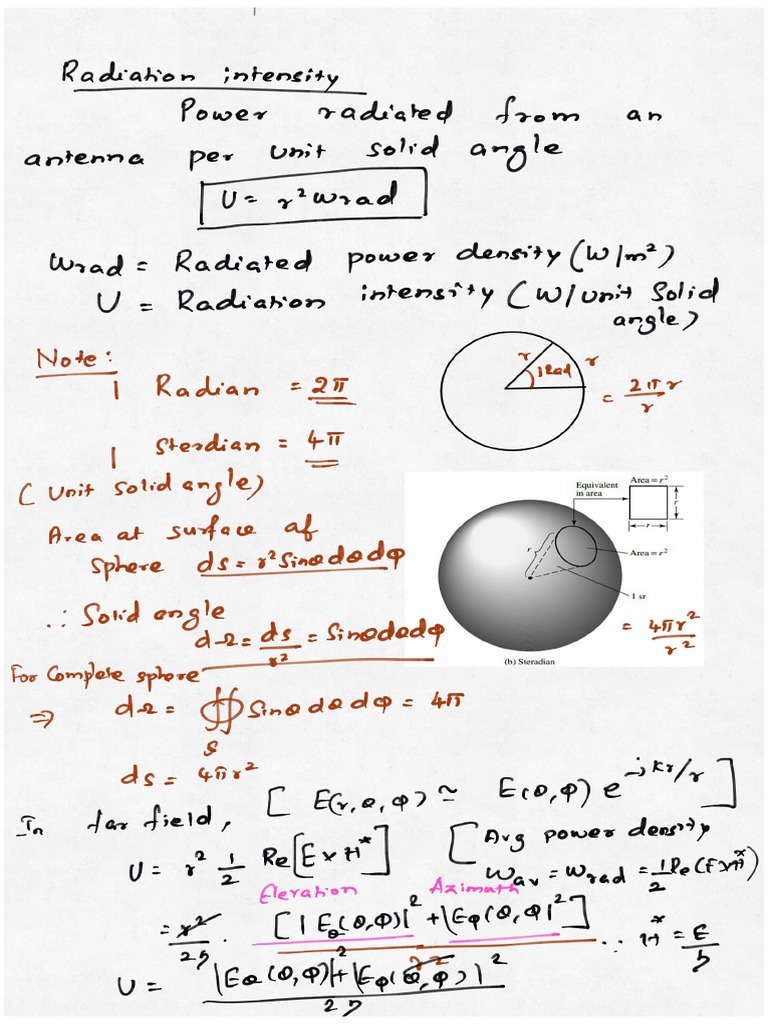 Radiation intensity
Power radiated from an
antenna per unit solid angle
U = r² Wrad
Wrad = Radiated power density (W/m²)
U = Radiation intensity (W/unit Solid
angle)
Note:
1 Radian = 2π
r 1 Rad r
= 2πr/r
1 Sterdian = 4π
(Unit solid angle)
Equivalent
in area
Area = r²
r
r
Area = r²
r
1 sr
= 4πr²/r²
(b) Steradian
Area at surface of
sphere ds = r² Sinθ dθ dφ
∴ Solid angle
dΩ = ds/r² = Sinθ dθ dφ
For Complete sphere
⇒ dΩ = ∯ Sinθ dθ dφ = 4π
S
ds = 4πr²
In far field, [ E(r,θ,φ) ≃ E(θ,φ) e^-jkr/r ]
U = r² 1/2 Re[E×H*] [ Avg power density
Wav = Wrad = 1/2 Re(E×H*)
Elevation Azimuth
= r²/2η · [|Eθ(θ,φ)|² + |Eφ(θ,φ)|²] / r² ∴ H* = E/η
U = |Eθ(θ,φ)|² + |Eφ(θ,φ)|² / 2η